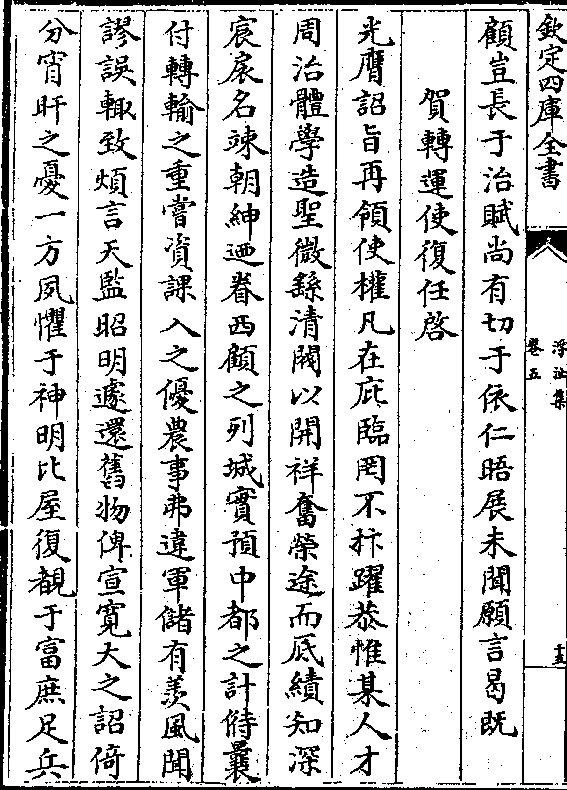 欽定四庫全書
浮沚集
卷五
十五
顧豈長于治賦尚有切于依仁晤展未聞願言曷既
賀轉運使復任啓
光膺詔旨再領使權凡在庇臨罔不抃躍恭惟某人才
周治體學造聖微繇清閥以開祥奮榮途而底績知深
宸扆名竦朝紳廼眷西顧之列城實預中都之計偫曩
付轉輸之重嘗資課入之優農事弗違軍儲有羨風聞
謬誤輙致煩言天監昭明遽還舊物俾宣寛大之詔倚
分宵旰之憂一方夙懼于神明比屋復覩于富庶足兵